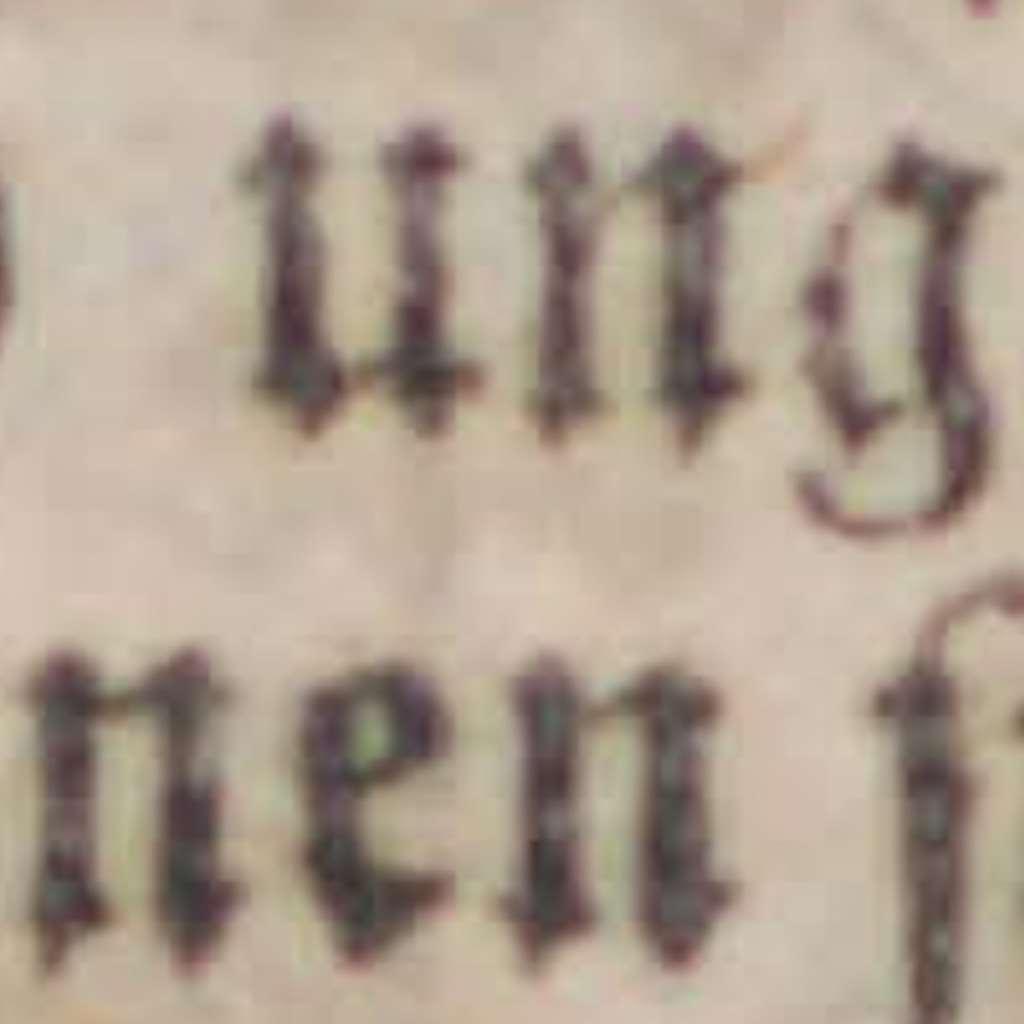 ung
nen ſ